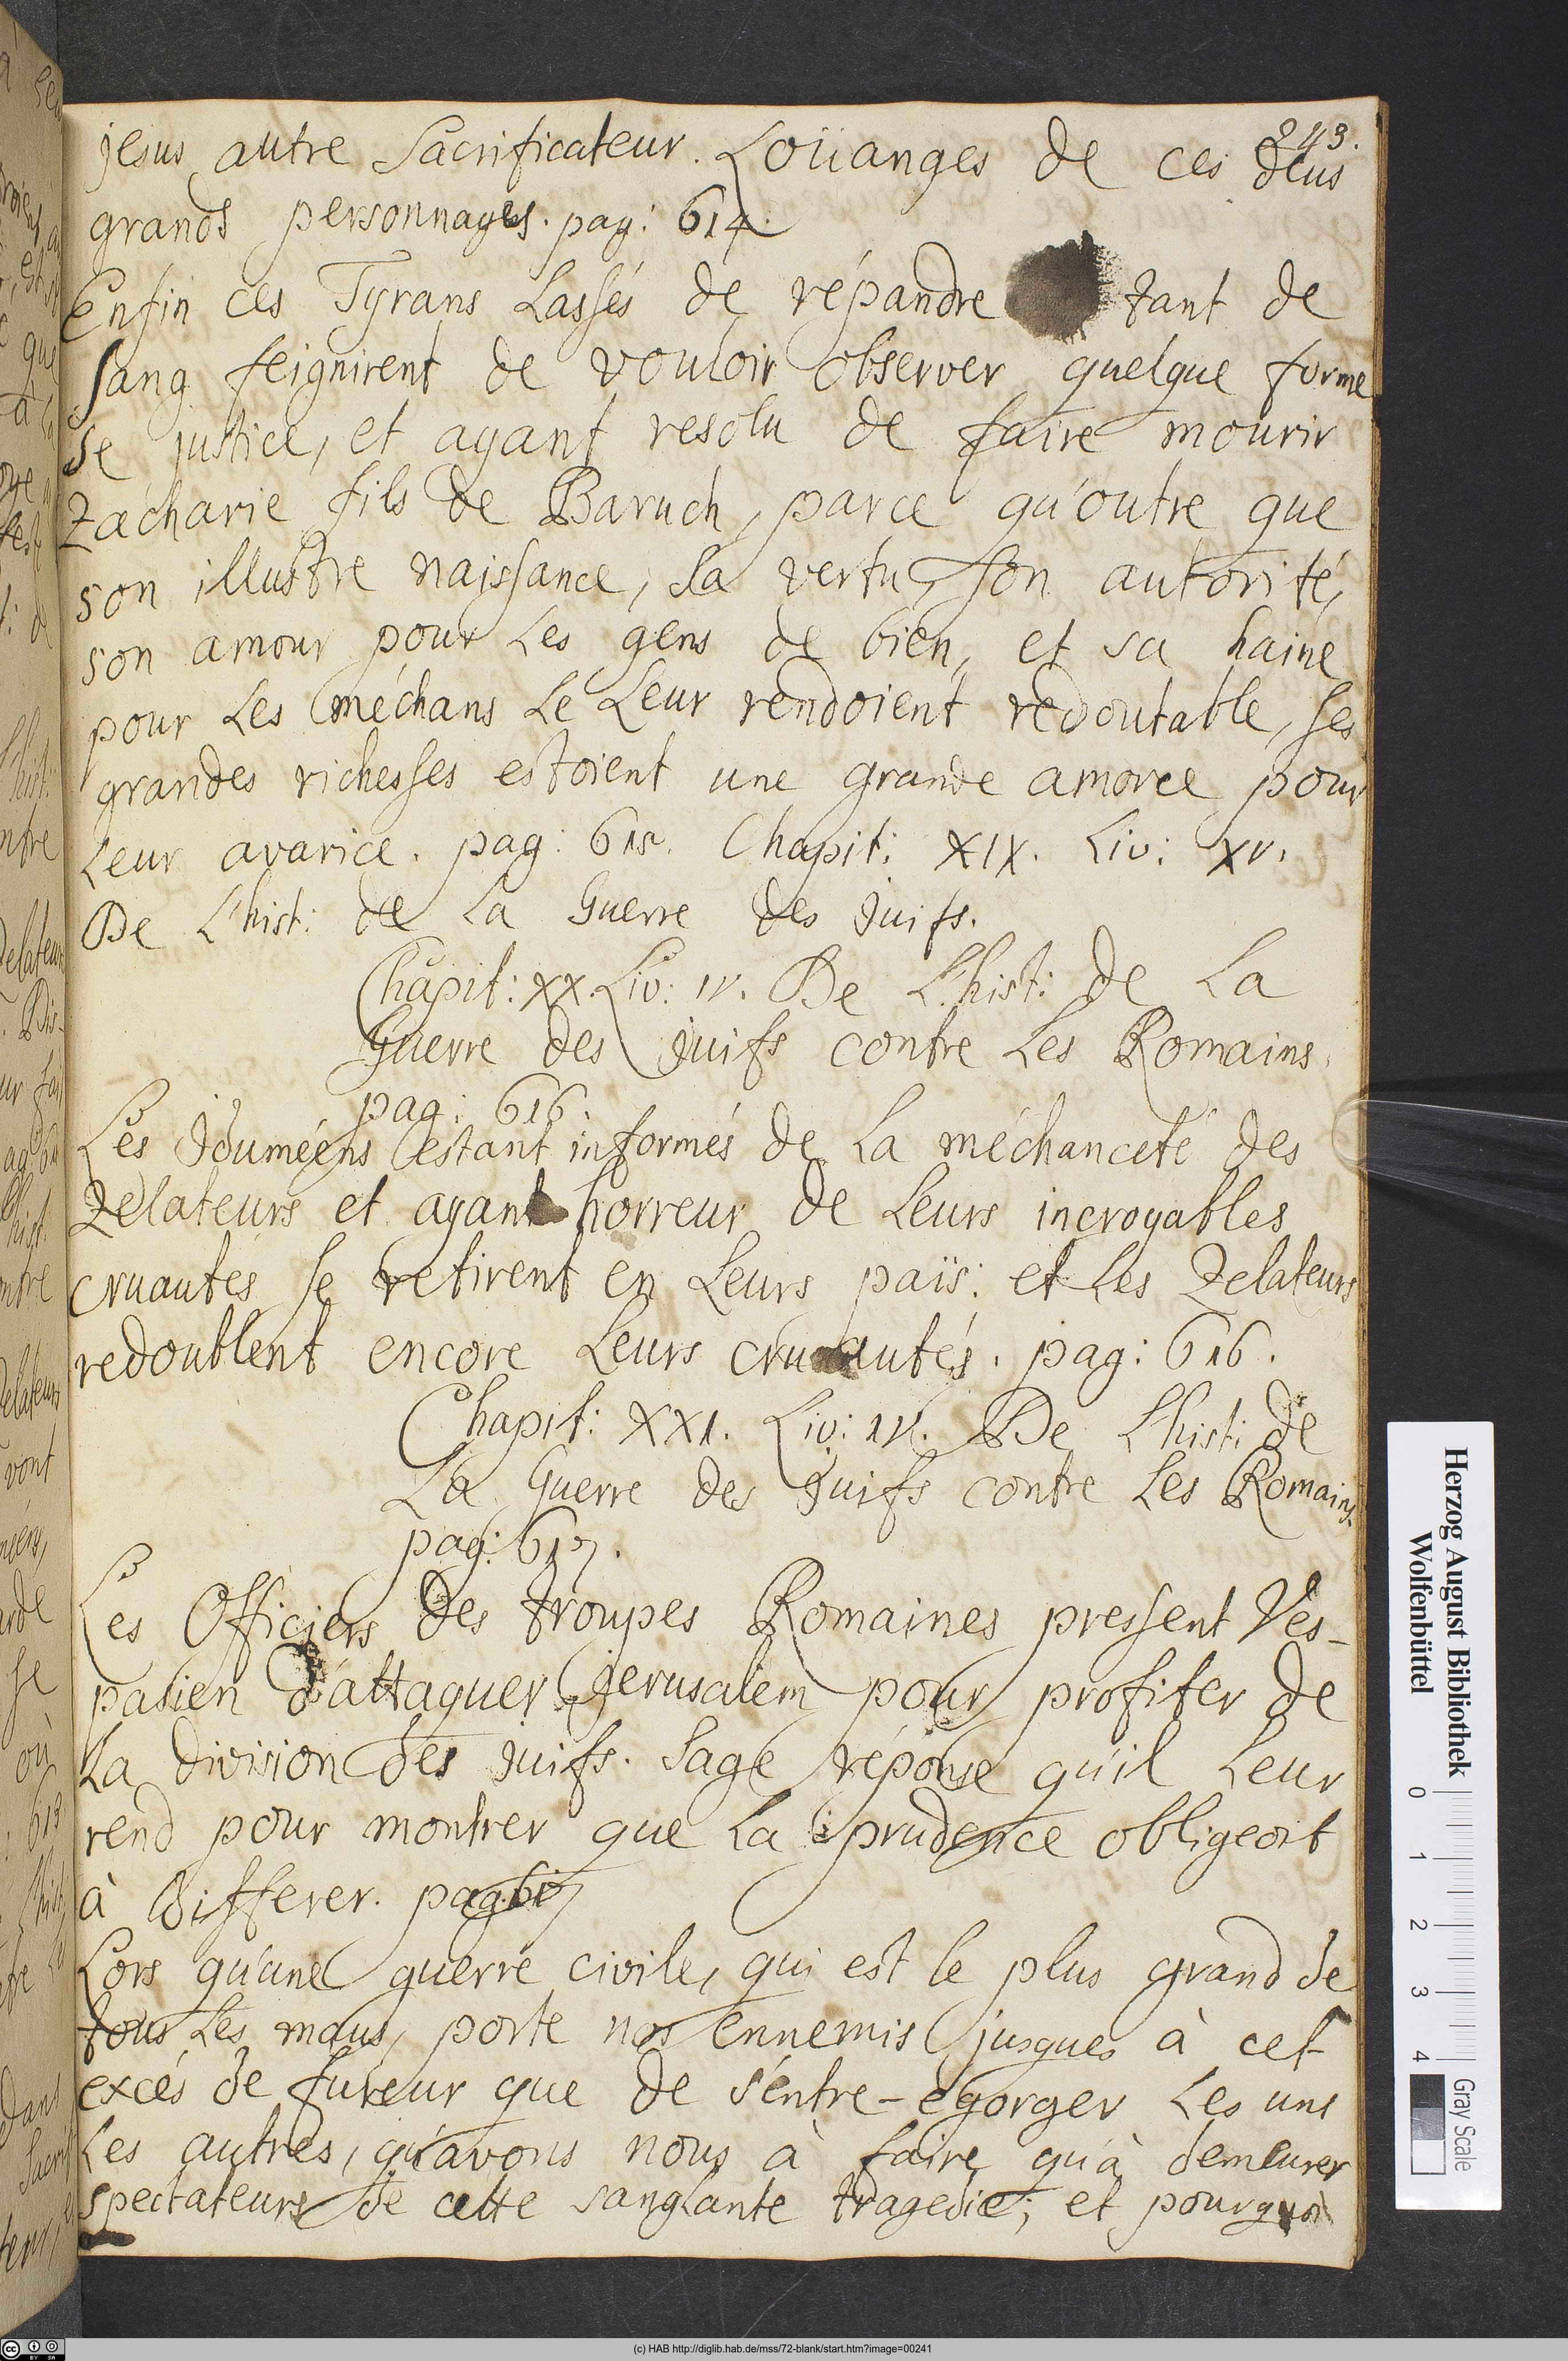 243.
jesus autre Sacrificateur. Loüanges de ces deus
grands personnages. pag: 614.
Enfin ces Tyrans Lassés de répandre tant de
Sang feignirent de vouloir observer quelque forme
de justice, et ayant resolu de faire mourir
Zacharie fils de Baruch, parce qu'outre que
son illustre naissance, sa vertu, son autorité,
son amour pour Les gens de bien, et sa haine
pour Les méchans Le Leur rendoient redoutable, ses
grandes richesses estoient une grande amorce pour
Leur avarice. pag: 615. Chapit: XIX. Liv: XV.
De L'hist: de La Guerre des Juifs.
Chapit: XX. Liv: IV. De L'hist: de La
Guerre des Juifs contre Les Romains.
pag: 616.
Les Iduméens estant informés de La méchanceté des
Zelateurs et ayant horreur de Leurs incroyables
cruautés se retirent en Leurs païs: et Les Zelateurs
redoublent encore Leurs cruautés. pag: 616.
Chapit: XXI. Liv: IV. De L'hist: de
La Guerre des Juifs contre Les Romains.
pag: 617.
Les Officiers des troupes Romaines pressent Ves-
pasien d'attaquer Jerusalem pour profiter de
La division des Juifs. Sage réponse qu'il Leur
rend pour montrer que La prudence obligeoit
à differer. pag: 617
Lors qu'une guerre civile, qui est le plus grand de
tous Les maus, porte nos ennemis jusques à cet
excés de fureur que de s'entre-égorger Les uns
Les autres, qu'avons nous à faire qu'à demeurer
spectateurs de cette sanglante tragedie; et pourquoi
Herzog August Bibliothek
Wolfenbüttel
0 1 2 3 4
Gray Scale
(c) HAB http://diglib.hab.de/mss/72-blank/start.htm?image=00241